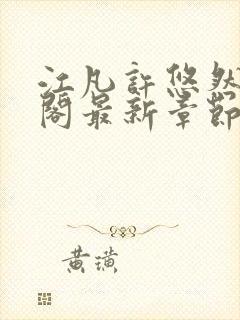 江凡許悠然
閣最新章節
黄璜